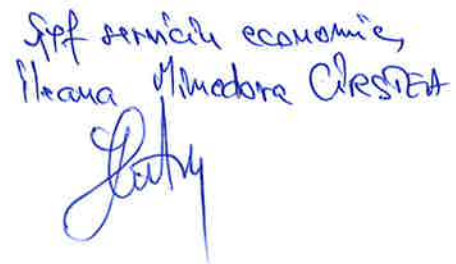 Șef serviciu economic,
Ileana Minodora CÎRSTEA